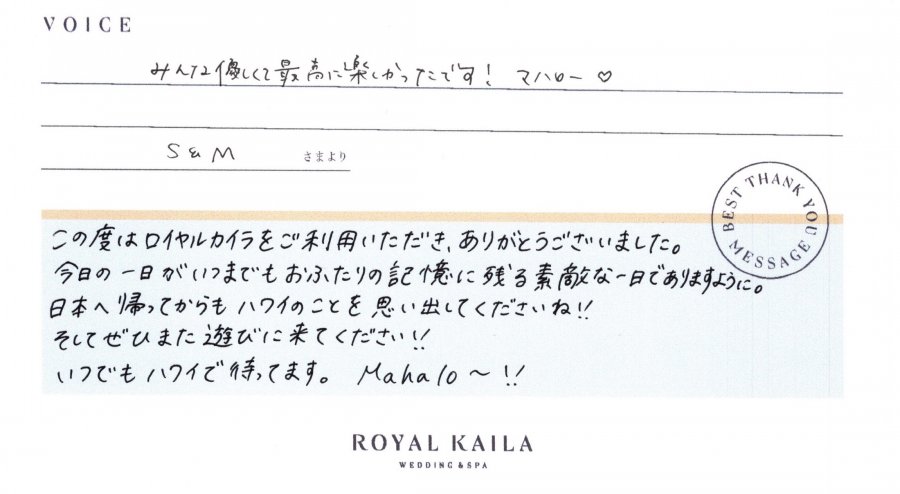 VOICE
みんな優しくて最高に楽しかったです! マハロー♡
S&M さまより
BEST THANK YOU MESSAGE
この度はロイヤルカイラをご利用いただき、ありがとうございました。
今日の一日がいつまでもおふたりの記憶に残る素敵な一日でありますように。
日本へ帰ってからもハワイのことを思い出してくださいね!!
そしてぜひまた遊びに来てください!!
いつでもハワイで待ってます。 Mahalo〜!!
ROYAL KAILA
WEDDING & SPA